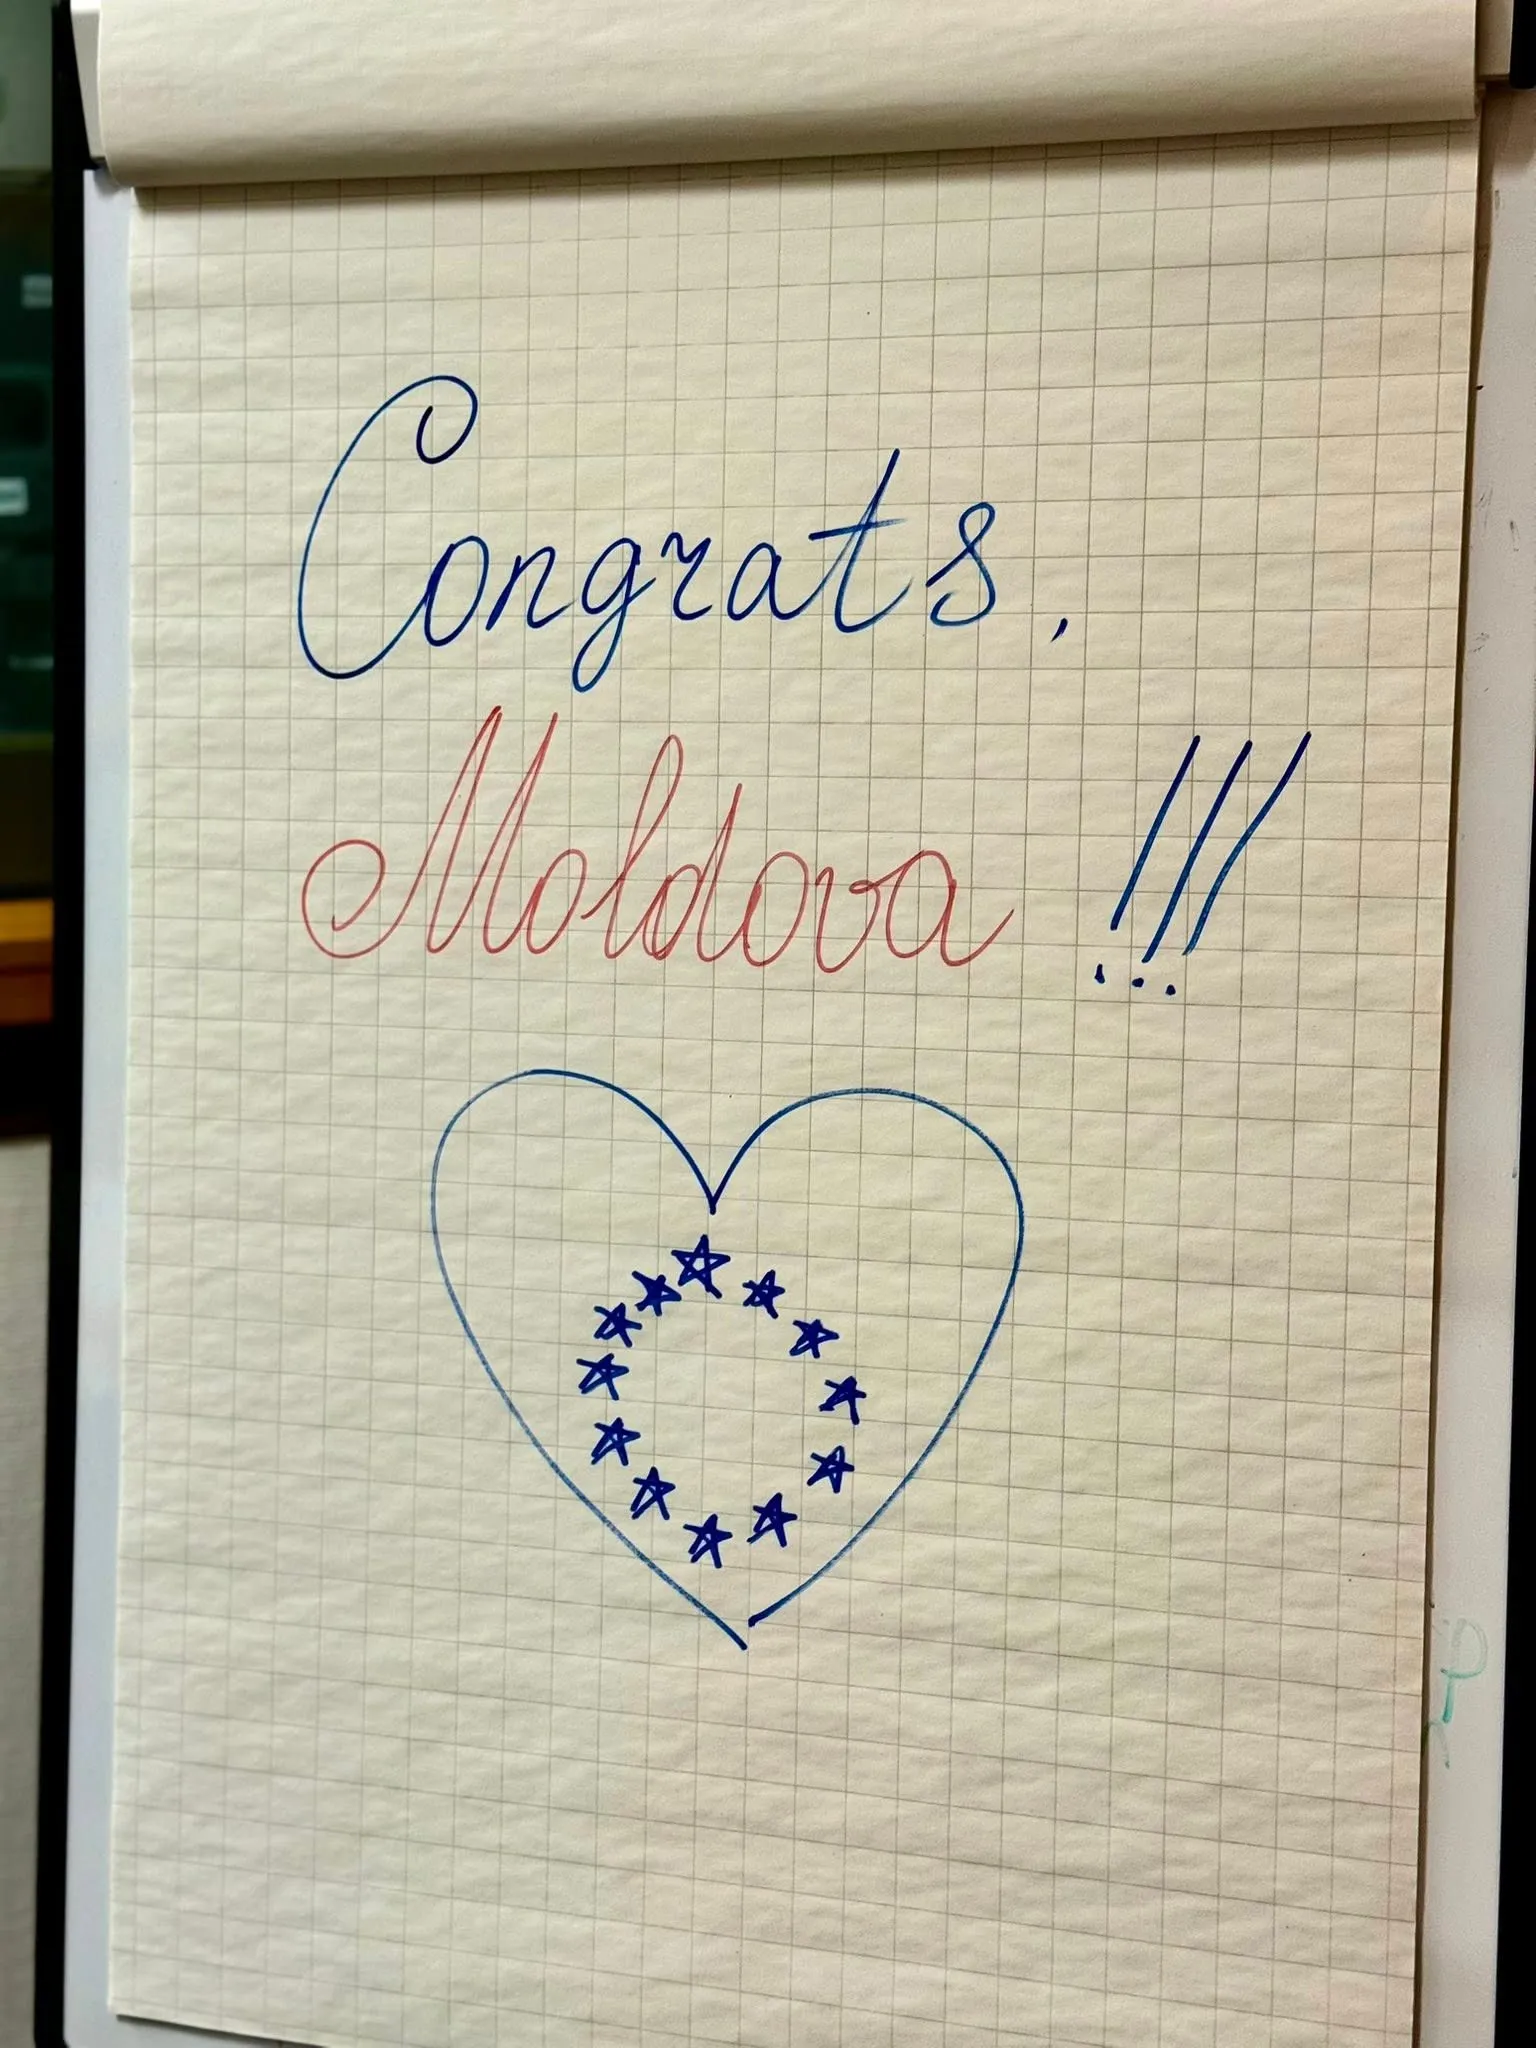 Congrats,
Moldova !!!